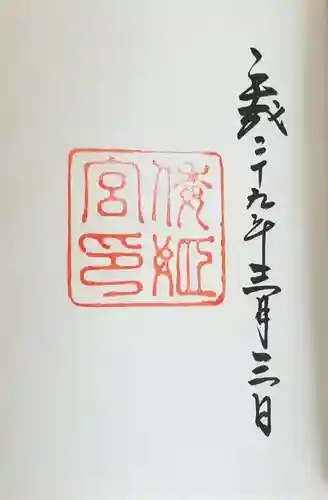 平成二十九年三月三日
倭姫
宮印